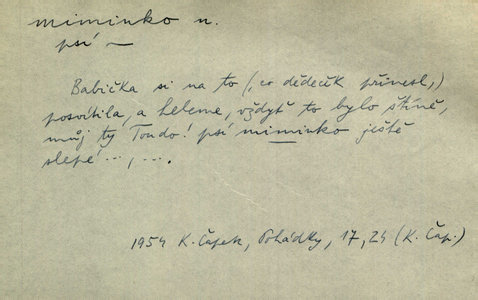 miminko n.
psí —
Babička si na to (, co dědeček přinesl,)
posvítila, a heleme, vždyť to bylo štíně,
můj ty Tondo! psí miminko ještě
slepé ..., ... .
1954 K. Čapek, Pohádky, 17, 24 (K. Čap.)